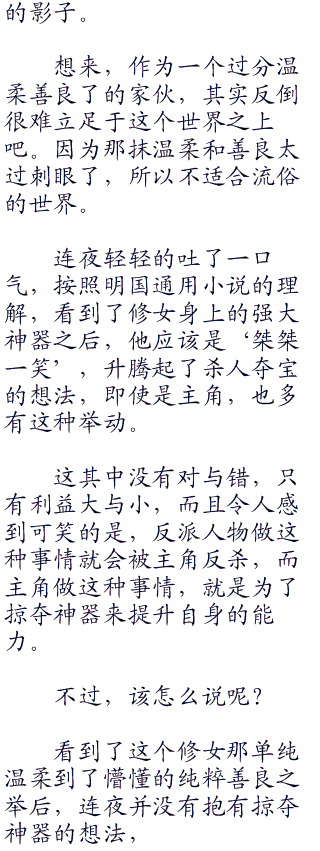 的影子。
想来，作为一个过分温
柔善良了的家伙，其实反倒
很难立足于这个世界之上
吧。因为那抹温柔和善良太
过刺眼了，所以不适合流俗
的世界。
连夜轻轻的吐了一口
气，按照明国通用小说的理
解，看到了修女身上的强大
神器之后，他应该是‘桀桀
一笑’，升腾起了杀人夺宝
的想法，即使是主角，也多
有这种举动。
这其中没有对与错，只
有利益大与小，而且令人感
到可笑的是，反派人物做这
种事情就会被主角反杀，而
主角做这种事情，就是为了
掠夺神器来提升自身的能
力。
不过，该怎么说呢？
看到了这个修女那单纯
温柔到了懵懂的纯粹善良之
举后，连夜并没有抱有掠夺
神器的想法，